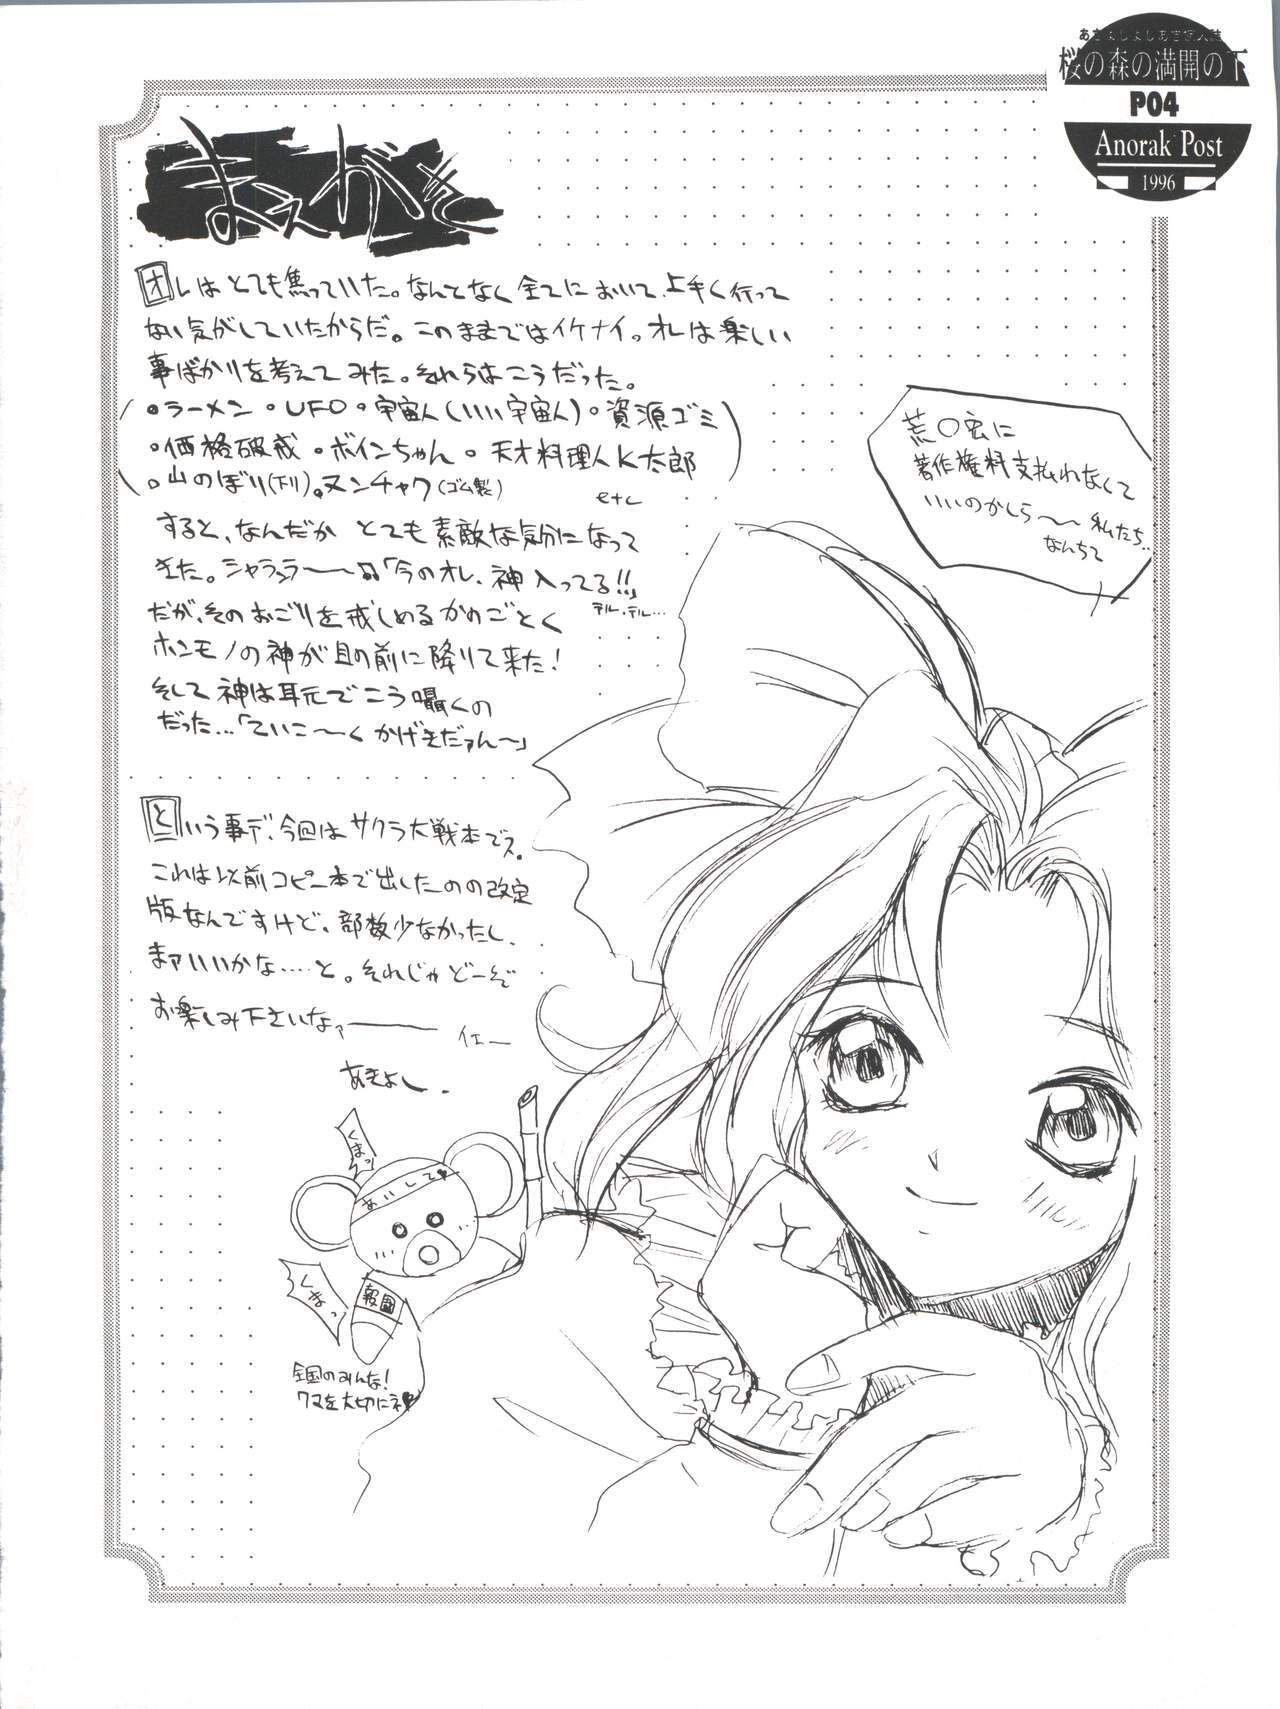 桜の森の満開の下
P04
Anorak Post
1996
まえがき
オレはとても焦っていた。なんとなく全てにおいて、上手く行って
ない気がしていたからだ。このままではイケナイっ オレは楽しい
事ばかりを考えてみた。それらはこうだった。
(・ラーメン・UFO・宇宙人(いい宇宙人)・資源ゴミ
・価格破戒・ボインちゃん・天才料理人K太郎
・山のぼり(下り)。ヌンチャク(ゴム製) etc)
すると、なんだか とても素敵な気分になって
きた。シャララ〜〜♫「今のオレ、神入ってる!!」
テル、テル…
だが、そのおごりを戒しめるかのごとく
ホンモノの神が目の前に降りて来た!
そして神は耳元でこう囁くの
だった…「ていこ〜く かげきだァん〜」
荒〇宏に
著作権料支払わなくて
いいのかしら〜〜 私たち..
なんちて
という事デ、今回はサクラ大戦本でス。
これは以前コピー本で出したのの改定
版なんですけど、部数少なかったし、
まァいいかな……と。それじゃどーぞ
お楽しみ下さいなァ―――
イエー
あきよし.
くまっ
あいして♥
くまっ
報國
全国のみんな!
クマを大切にネ♥